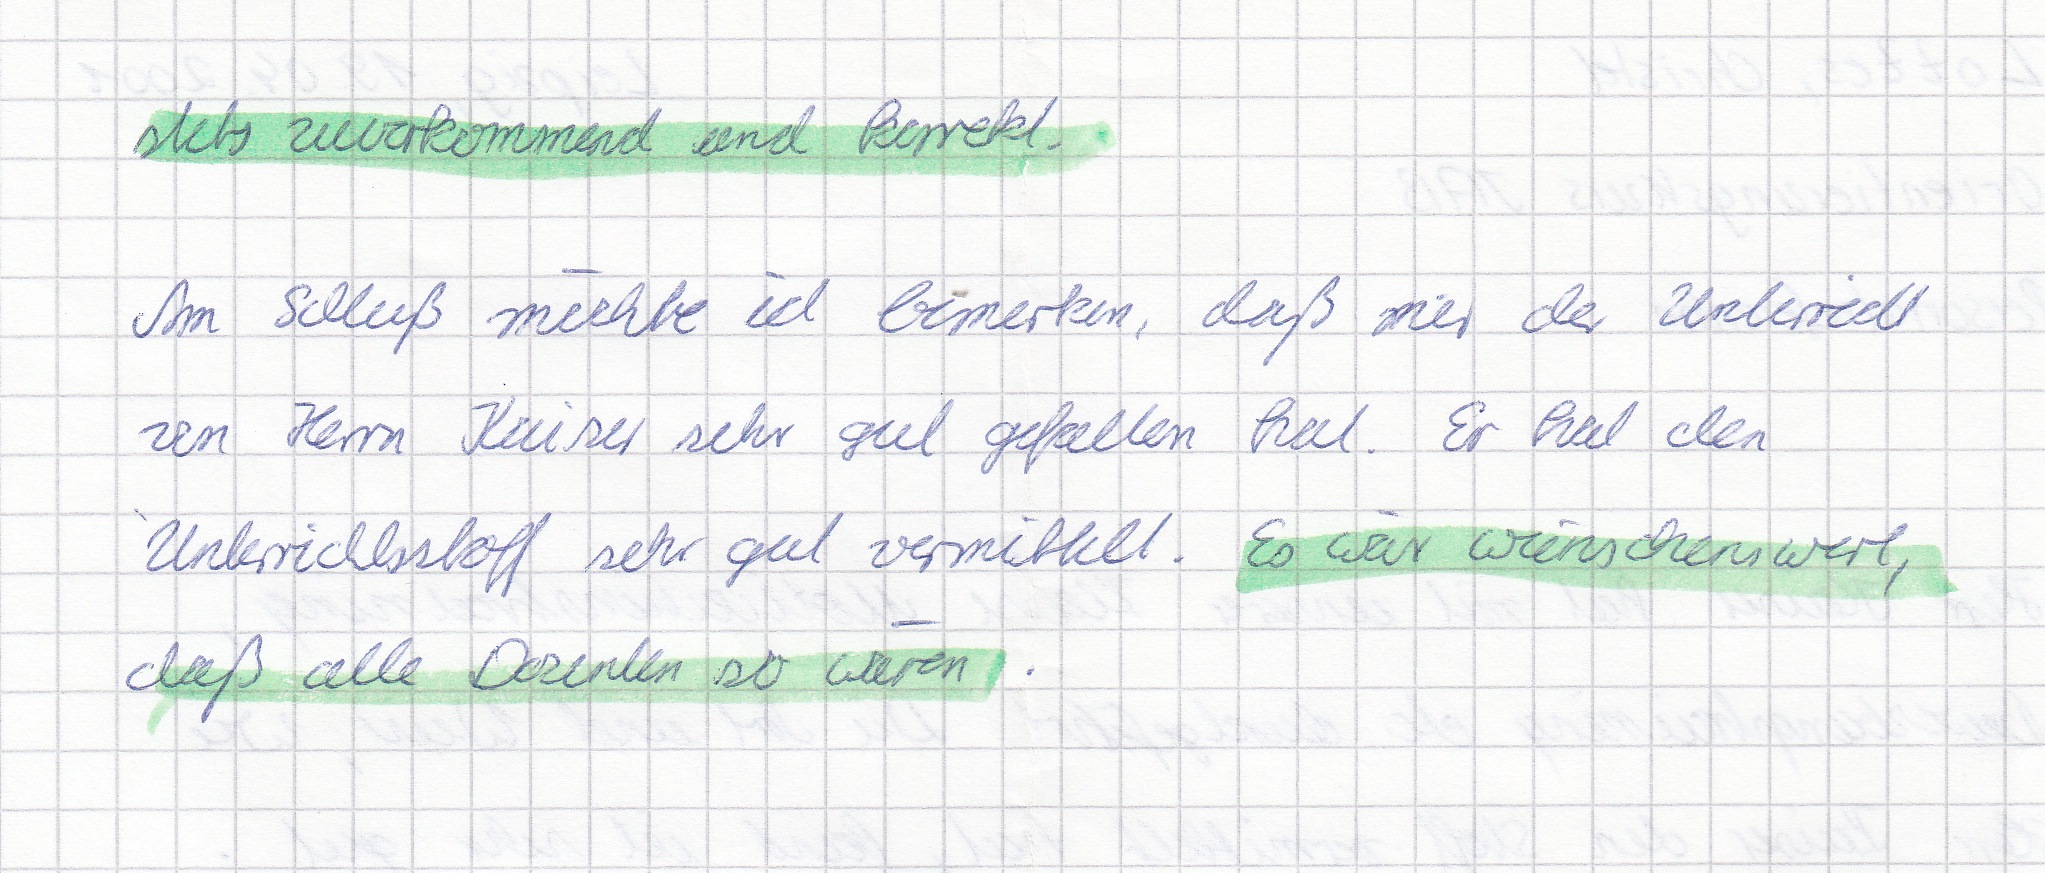 stets zuvorkommend und korrekt.
Am Schluß möchte ich bemerken, daß mir der Unterricht
von Herrn Kaiser sehr gut gefallen hat. Er hat den
Unterrichtsstoff sehr gut vermittelt. Es wär wünschenswert,
daß alle Dozenten so wären.